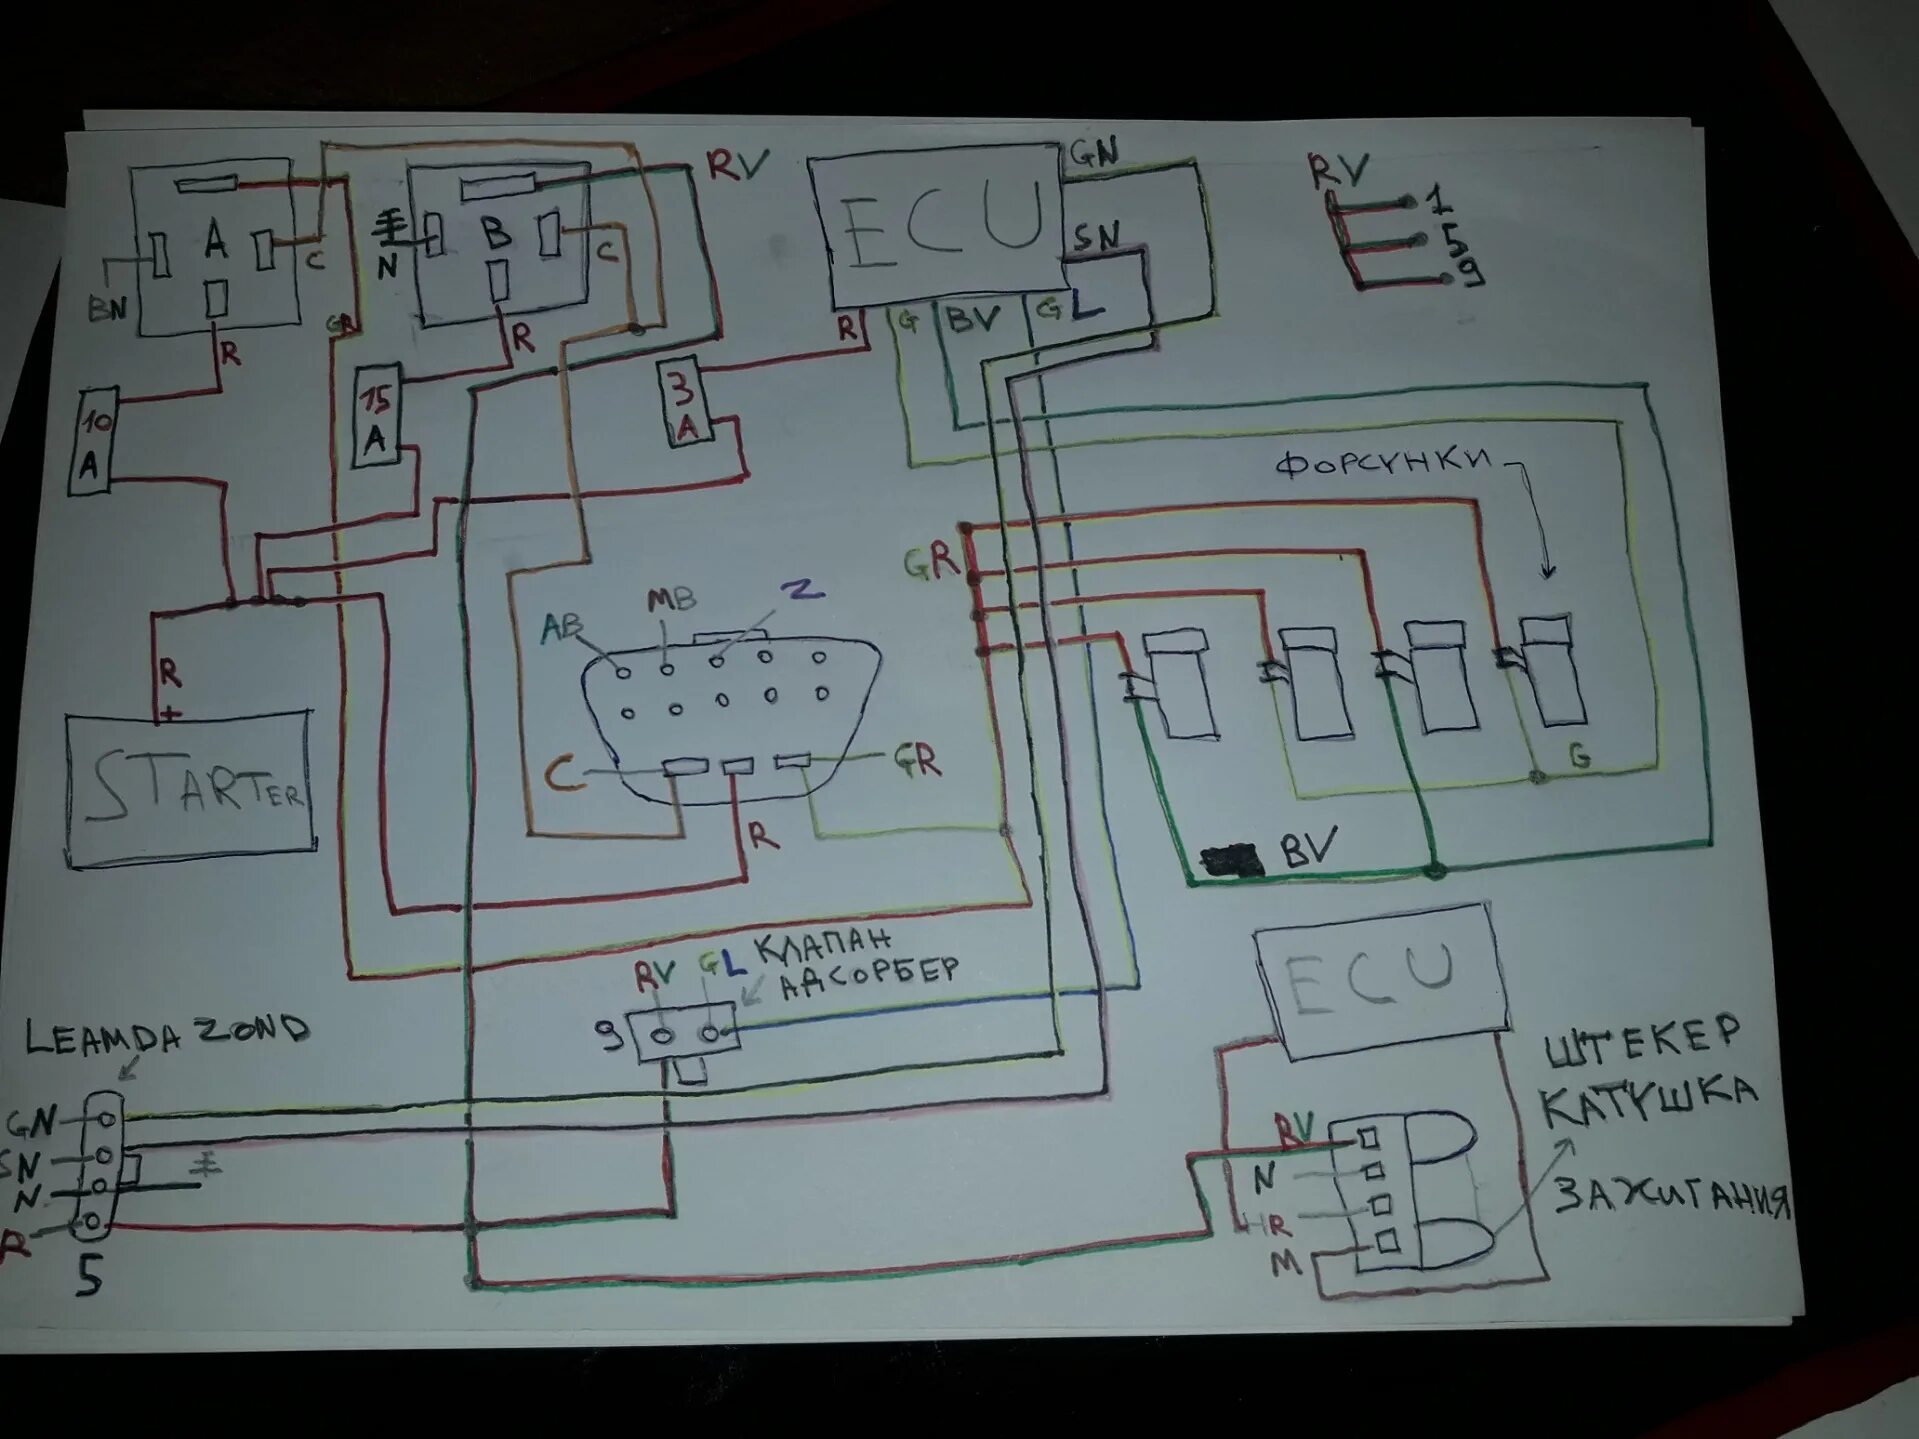 A
C
BN
R
GR
10
A
B
N
C
R
RV
15
A
3
A
ECU
GN
SN
R
G
BV
GL
RV
1
5
9
ФОРСУНКИ
GR
G
BV
AB
MB
Z
C
GR
R
R
+
STARTER
RV
GL
КЛАПАН
АДСОРБЕР
9
LEAMDA ZOND
GN
SN
N
R
5
ECU
ШТЕКЕР
КАТУШКА
ЗАЖИГАНИЯ
RV
N
HR
M